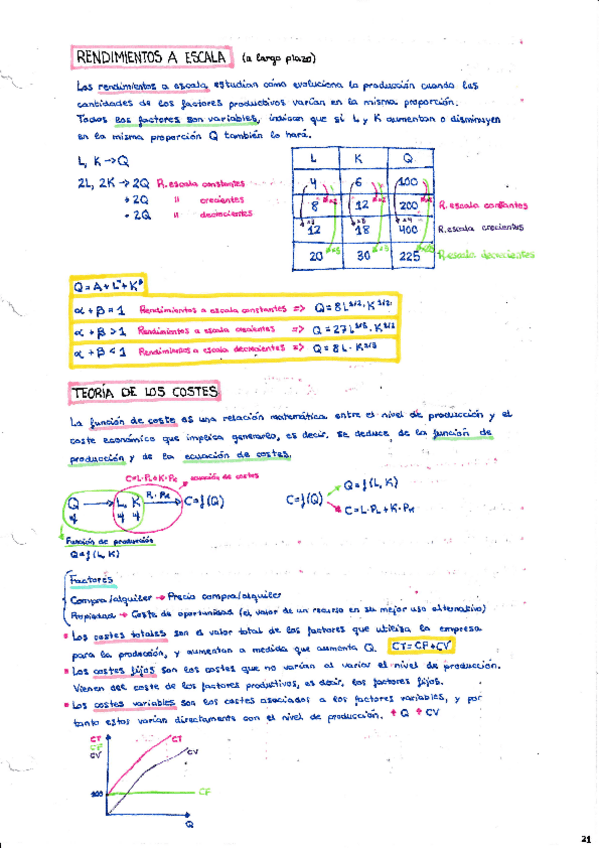 RENDIMIENTOS A ESCALA (a largo plazo)
Los rendimientos a escala, estudian cómo evoluciona la producción cuando las
cantidades de los factores productivos varían en la misma proporción.
Todos los factores son variables, indican que si L y K aumentan o disminuyen
en la misma proporción Q también lo hará.
L, K → Q
2L, 2K → 2Q R. escala constantes
+ 2Q " crecientes
- 2Q " decrecientes
L K Q
4 6 100
8 12 200 R. escala constantes
12 18 400 R. escala crecientes
20 30 225 R. escala decrecientes
α + β = 1 Rendimientos a escala constantes =>
α + β > 1 Rendimientos a escala crecientes =>
α + β < 1 Rendimientos a escala decrecientes =>
TEORÍA DE LOS COSTES
La función de coste es una relación matemática entre el nivel de producción y el
coste económico que implica generarlo, es decir. Se deduce de la función de
producción y de la ecuación de costes.
C=L·PL+K·PK ecuación de costes
Q → L, K → C=f(Q)
C=f(Q)
Q=f(L, K)
C=L·PL+K·PK
Función de producción
Q=f(L, K)
Factores
Compra/alquiler → Precio compra/alquiler
Propiedad → Coste de oportunidad (el valor de un recurso en su mejor uso alternativo)
• Los costes totales son el valor total de los factores que utiliza la empresa
para la producción, y aumentan a medida que aumenta Q. CT=CF+CV
• Los costes fijos son los costes que no varían al variar el nivel de producción.
Vienen del coste de los factores productivos, es decir, los factores fijos.
• Los costes variables son los costes asociados a los factores variables, y por
tanto estos varían directamente con el nivel de producción. ↑ Q ↑ CV
CT
CF
CV
CT
CV
CF
Q
21